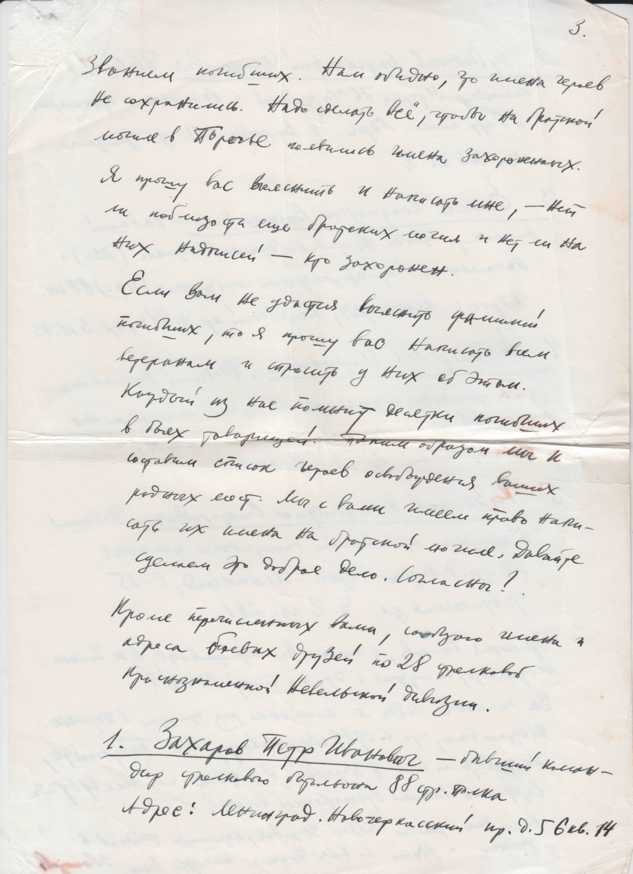 3.
званием погибших. Нам обидно, что имена героев
не сохранились. Надо сделать всё, чтобы на братской
могиле в Поречье появились имена захороненных.
Я прошу вас выяснить и написать мне, – нет
ли поблизости еще братских могил и нет ли на
них надписей – кто захоронен.
Если вам не удастся выяснить фамилий
погибших, то я прошу вас написать всем
ветеранам и спросить у них об этом.
Каждый из нас помнит десятки погибших
в боях товарищей. Таким образом мы и
составим список героев освобождения ваших
родных мест. Мы с вами имеем право напи-
сать их имена на братской могиле. Давайте
сделаем это доброе дело. Согласны?
Кроме перечисленных вами, сообщаю имена и
адреса боевых друзей по 28 стрелковой
Краснознаменной Невельской дивизии.
1. Захаров Петр Иванович – бывший коман-
дир стрелкового батальона 88 стр. полка
Адрес: Ленинград. Новочеркасский пр. д. 56 кв. 14